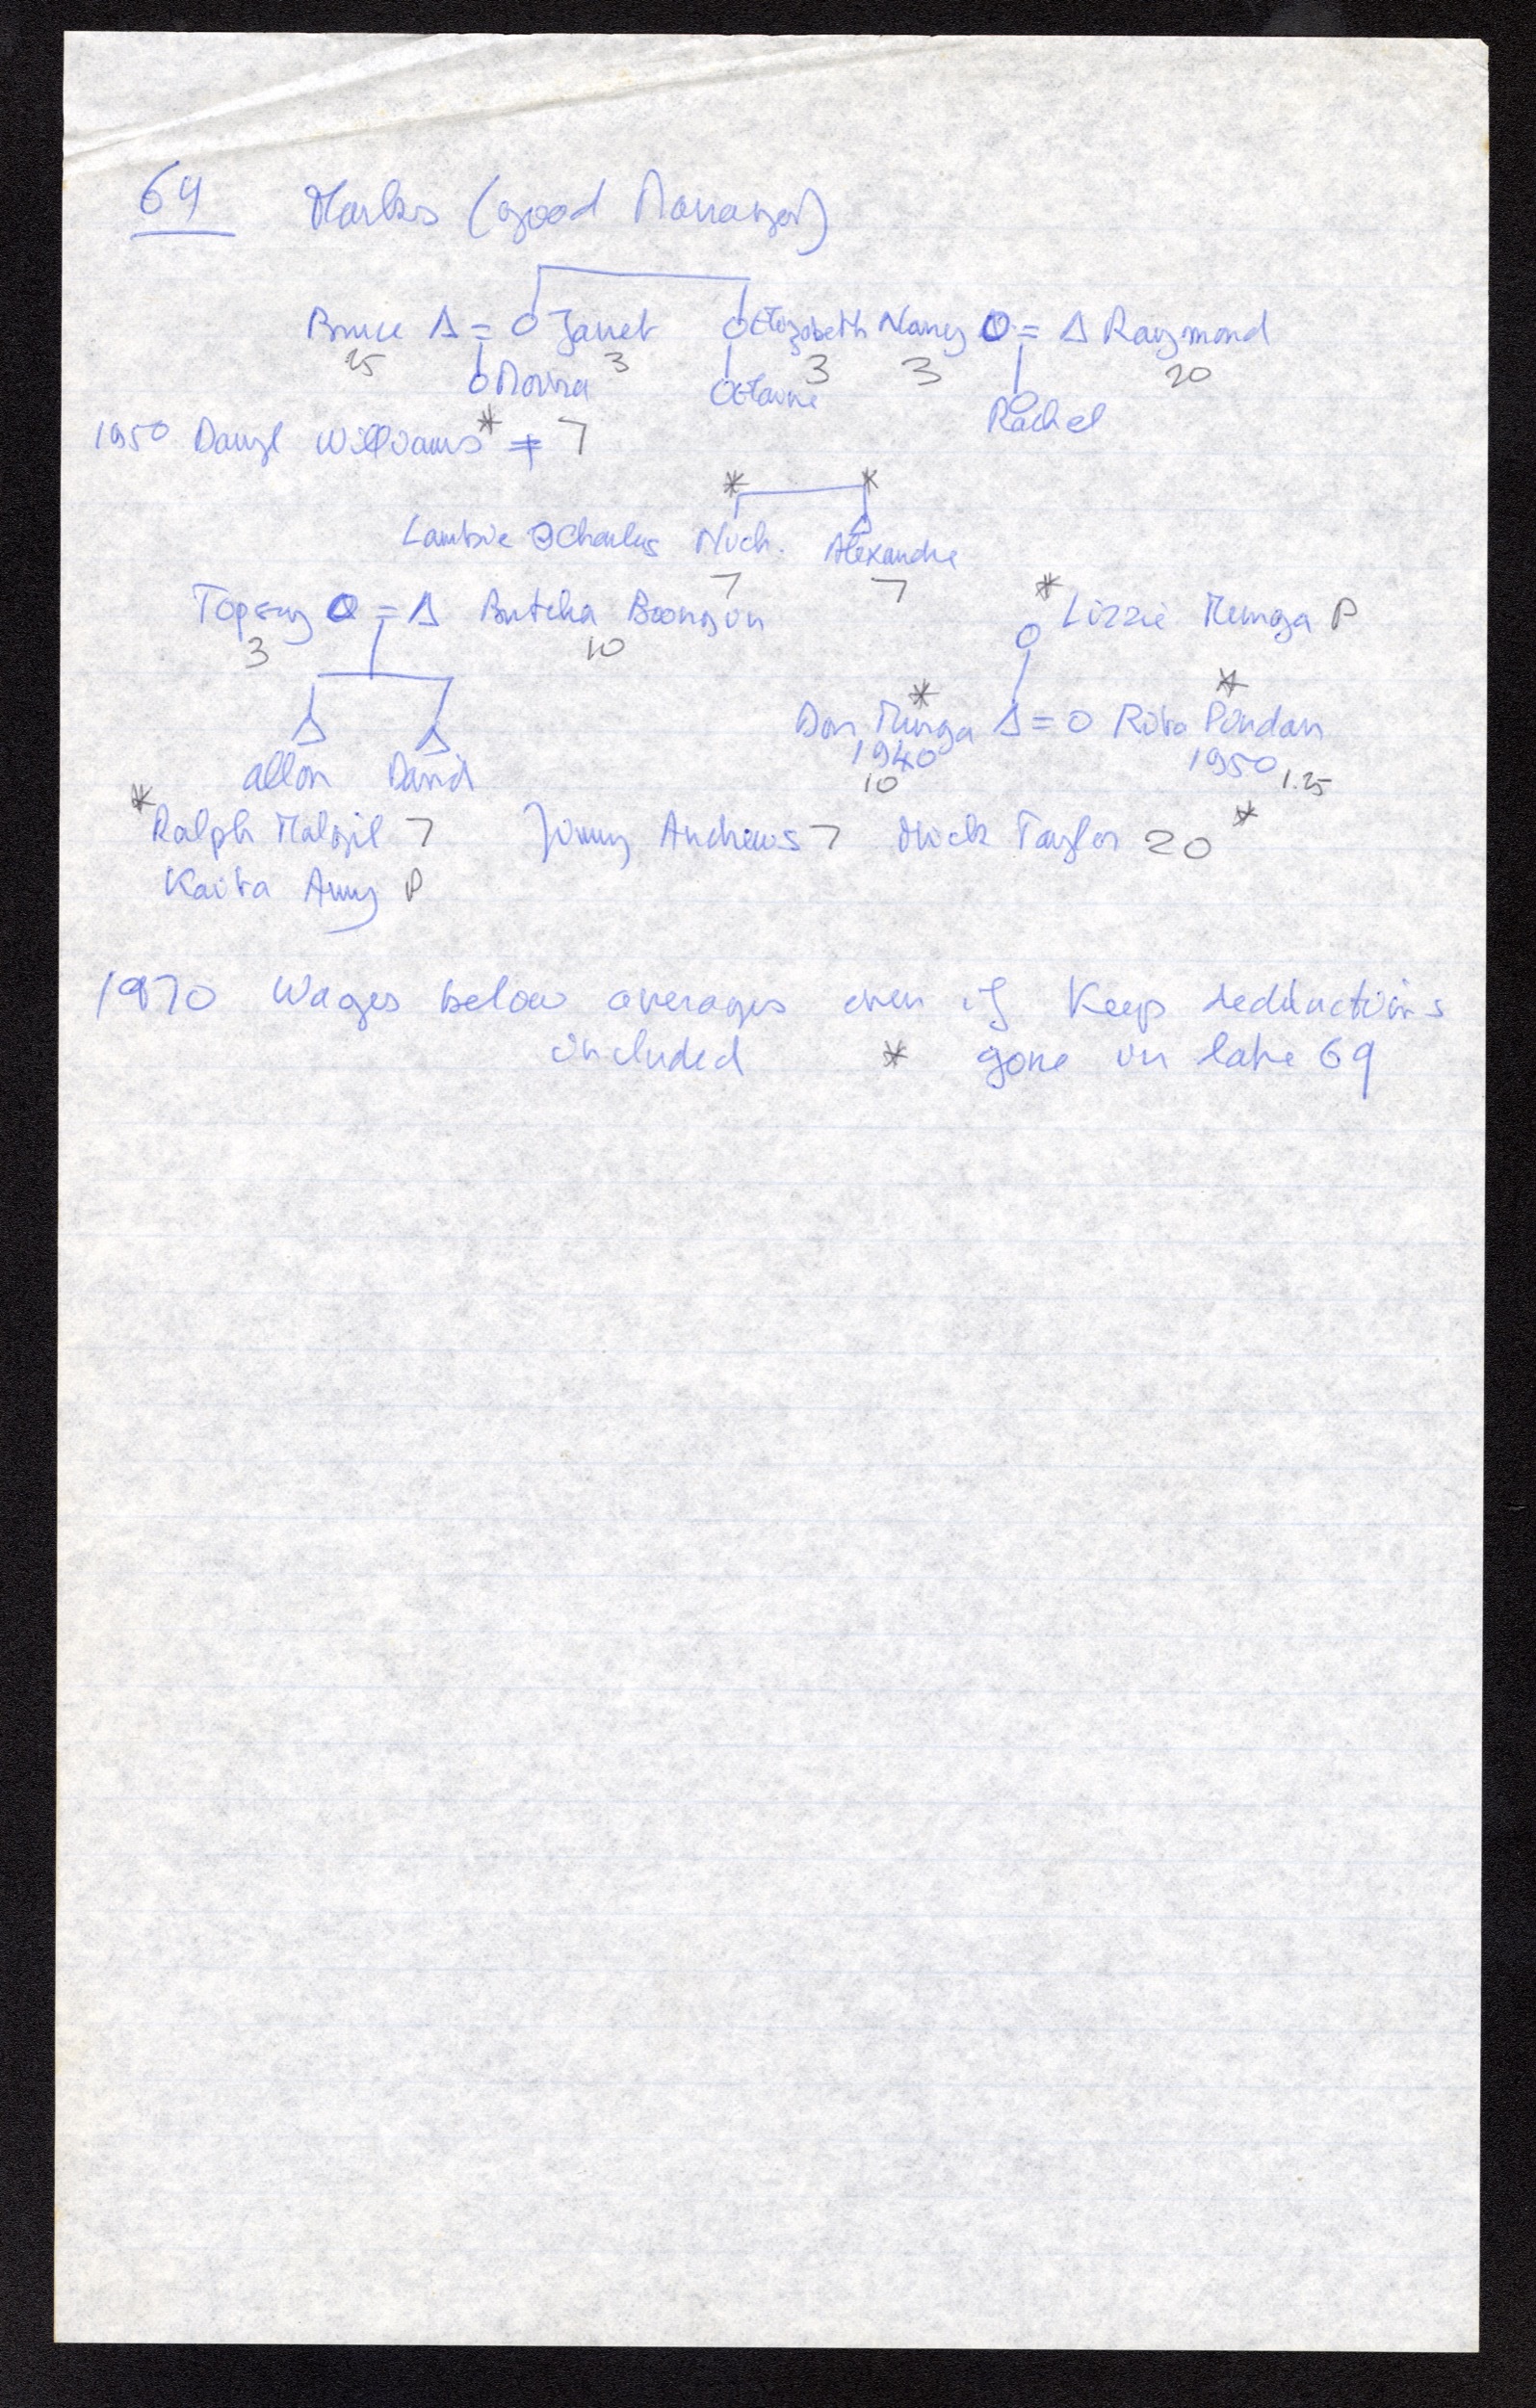 64 Marks (good Manager)
Bruce Δ = O Janet O Elizabeth Nancy O = Δ Raymond
25 3 3 3 20
O Moira O Elaine Rachel
1950 Daryl Williams * ≠ 7
* *
Lambie Charles Nick. Alexander
7 7
Topsy O = Δ Butcha Boongun * Lizzie Munga P
3 10 O
* *
Don Munga Δ = O Rita Pindan
allon David 1940 1950
10 1.25
* Ralph Malgil 7 Jimmy Andrews 7 Mick Taylor 20 *
Kaita Amy P
1970 Wages below averages even if Keep dedductions
included * gone in late 69